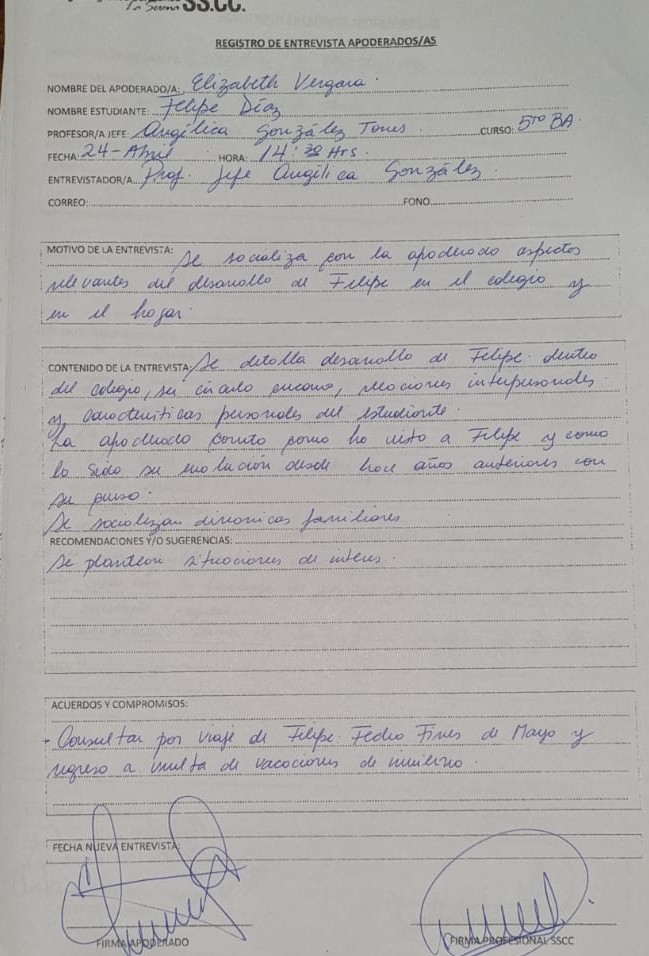 La Serena SS.CC.
REGISTRO DE ENTREVISTA APODERADOS/AS
NOMBRE DEL APODERADO/A: Elizabeth Vergara.
NOMBRE ESTUDIANTE: Felipe Díaz
PROFESOR/A JEFE: Angélica González Torres. CURSO: 5TO BA.
FECHA: 24-Abril HORA: 14:30 Hrs.
ENTREVISTADOR/A Prof. Jefe Angélica González.
CORREO: FONO
MOTIVO DE LA ENTREVISTA: Se socializa con la apoderado aspectos
relevantes del desarrollo de Felipe en el colegio y
en el hogar.
CONTENIDO DE LA ENTREVISTA: Se detalla desarrollo de Felipe dentro
del colegio, su círculo cercano, relaciones interpersonales
y características personales del estudiante.
La apoderado como ha visto a Felipe y como
ha sido su evolución desde hace años anteriores con
su curso.
Se socializan dinámicas familiares
RECOMENDACIONES Y/O SUGERENCIAS:
Se plantean situaciones de interés.
ACUERDOS Y COMPROMISOS:
- Consultar por viaje de Felipe. Fecha Fines de Mayo y
regreso a vuelta de vacaciones de invierno.
FECHA NUEVA ENTREVISTA:
FIRMA APODERADO FIRMA PROFESIONAL SSCC